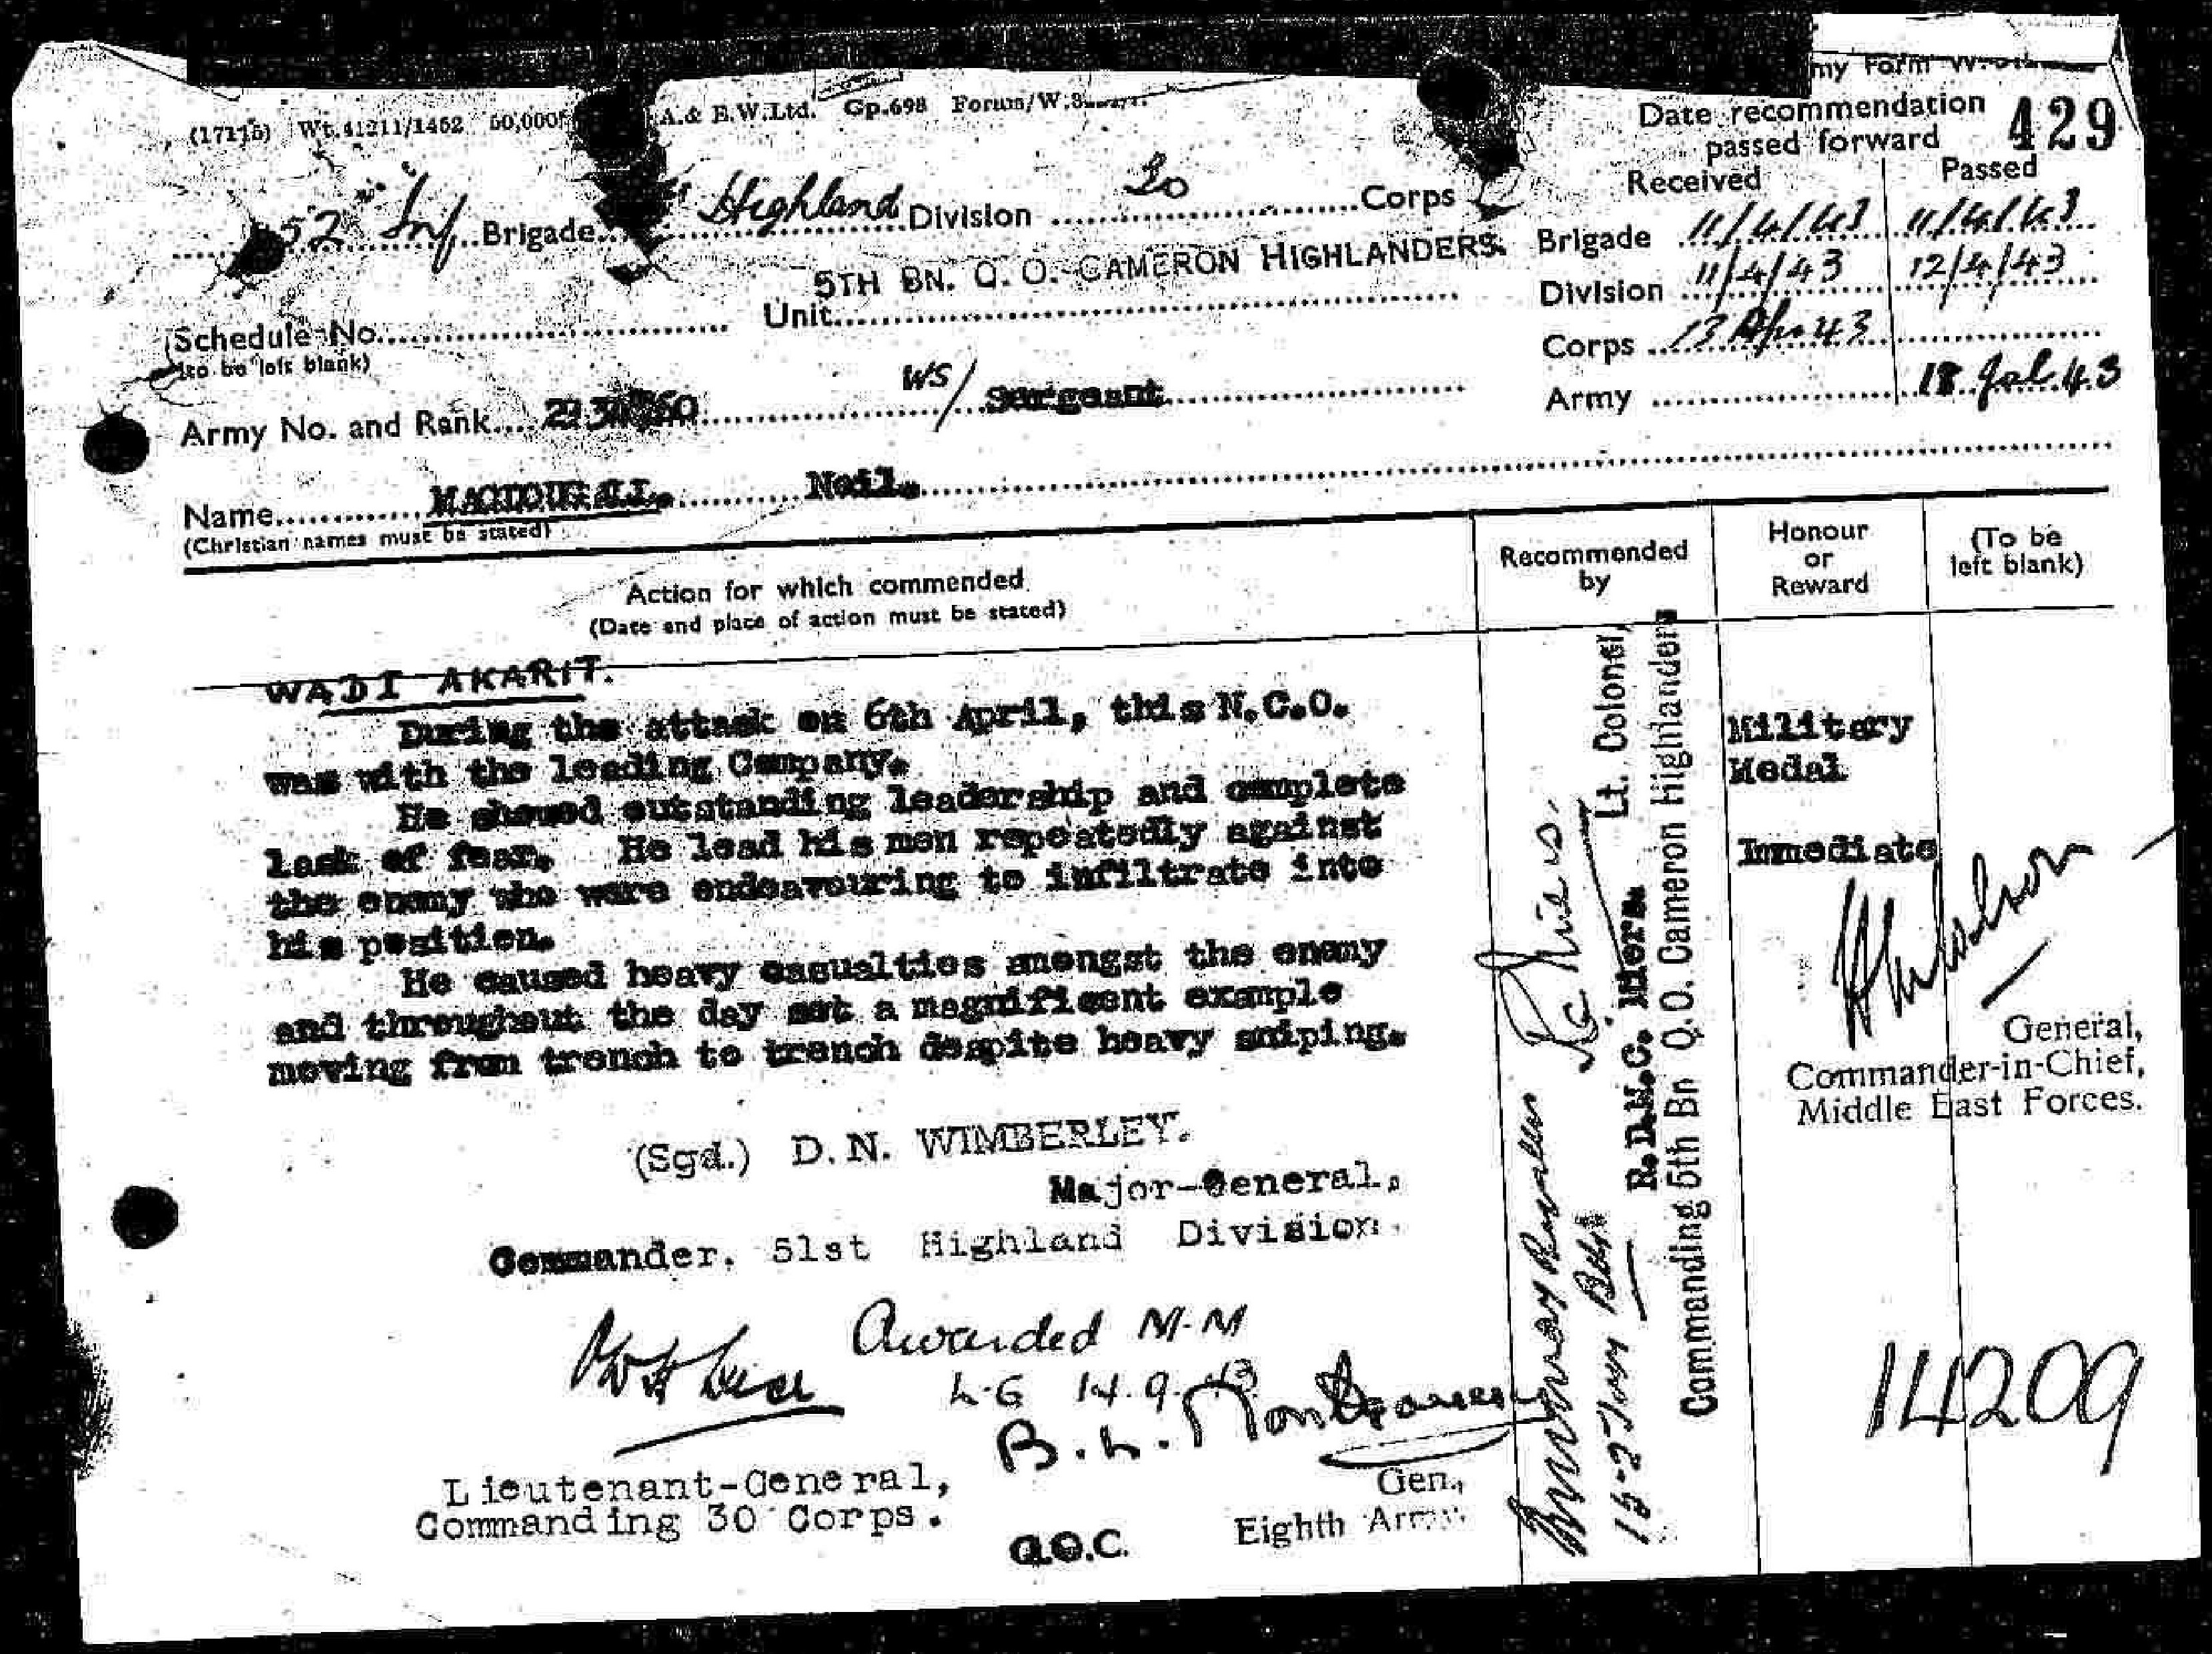 (17115) Wt.41211/1462 50,000 A.& E.W.Ltd. Gp.698
my Form
Date recommendation passed forward
429
Received Passed
Inf Brigade Highland Division 30 Corps
Brigade 11/4/43 11/4/43
5TH BN. Q. O. CAMERON HIGHLANDERS.
Division 11/4/43 12/4/43
Schedule No. Unit
(to be left blank)
Corps 13 Apr 43
Army No. and Rank WS/ Sergeant
Army 18 Jul 43
Name MACDOUGALL, Neil.
(Christian names must be stated)
Action for which commended
(Date and place of action must be stated)
Recommended by
Honour or Reward
(To be left blank)
WADI AKARIT.
During the attack on 6th April, this N.C.O.
was with the leading Company.
He showed outstanding leadership and complete
lack of fear. He lead his men repeatedly against
the enemy who were endeavouring to infiltrate into
his position.
He caused heavy casualties amongst the enemy
and throughout the day set a magnificent example
moving from trench to trench despite heavy sniping.
(Sgd.) D.N. WIMBERLEY.
Major-General,
Commander, 51st Highland Division.
Awarded M.M
L.G 14.9.43
B.L. Montgomery
Lieutenant-General,
Commanding 30 Corps.
Gen.,
G.O.C. Eighth Army.
Lt. Colonel,
R.D.M.C. Miers.
Commanding 5th Bn Q.O. Cameron Highlanders
Military
Medal
Immediate
General,
Commander-in-Chief,
Middle East Forces.
14209